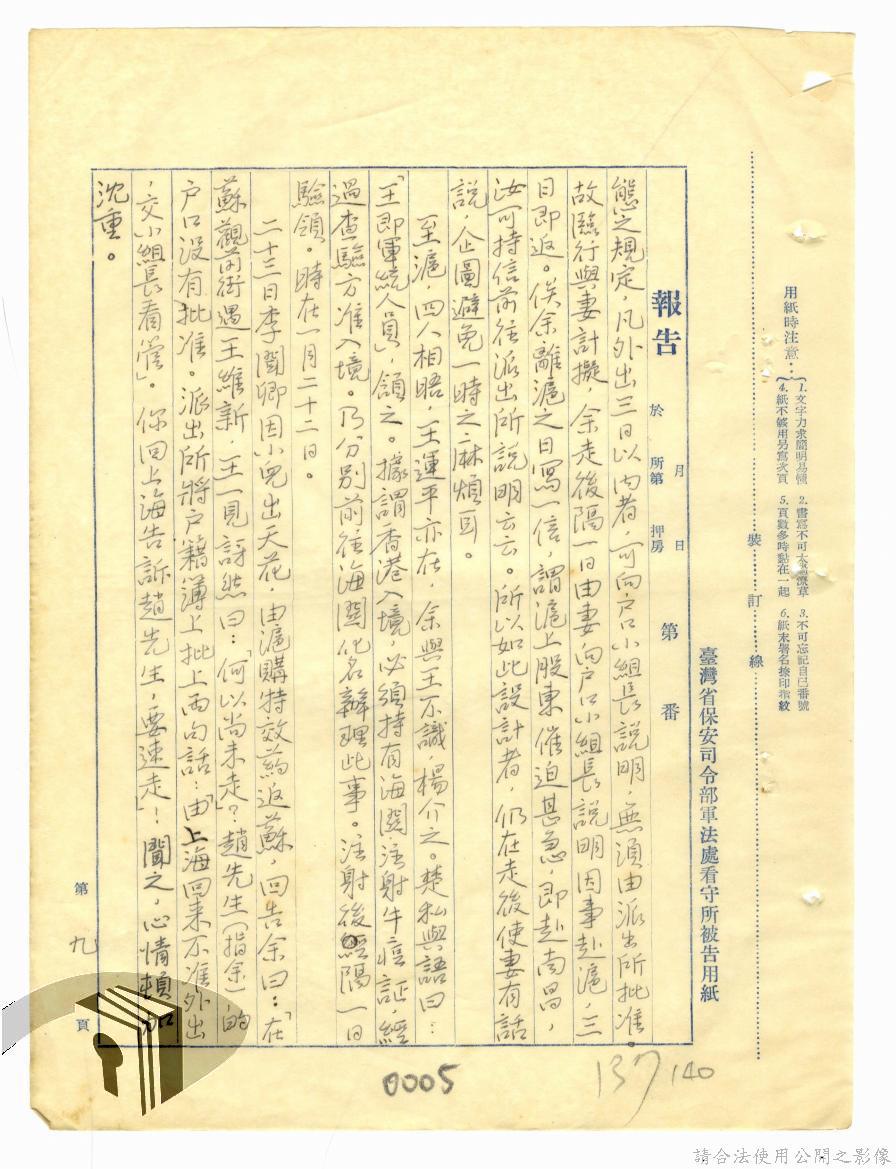 用紙時注意：
1. 文字力求簡明易懂
2. 書寫不可太過潦草
3. 不可忘記自己番號
4. 紙不够用另寫次頁
5. 頁數多時黏在一起
6. 紙末署名捺印指紋
裝訂線
臺灣省保安司令部軍法處看守所被告用紙
報告
於 月 日
所第 押房
第 番
態之規定，凡外出三日以內者，可向户口小組長說明，無須由派出所批准。
故臨行與妻計擬，余走後隔一日由妻向户口小組長說明因事赴滬，三
日即返。俟余離滬之日寫一信，謂滬上股東催迫甚急，即赴南昌，
汝可持信前往派出所說明云云。所以如此設計者，仍在走後使妻有話
說，企圖避免一時之麻煩耳。
至滬，四人相晤，王運平亦在，余與王不識，楊介之。楚私與語曰：
「王即軍統人員」，頷之。據謂香港入境，必須持有海關注射牛痘証，經
過查驗方准入境。乃分別前往海關化名辦理此事。注射後經隔一日
驗領。時在一月二十二日。
二十三日李聞卿因小兒出天花，由滬購特效葯返蘇，回告余曰：「在
蘇觀前街遇王維新，王一見訝然曰：「何以尚未走」？趙先生（指余）的
户口没有批准。派出所將户籍簿上批上兩句話：「由上海回来不准外出
，交小組長看管」。你回上海告訴趙先生，要速走」！聞之，心情頓加
沈重。
第九頁
0005
137
140
請合法使用公開之影像